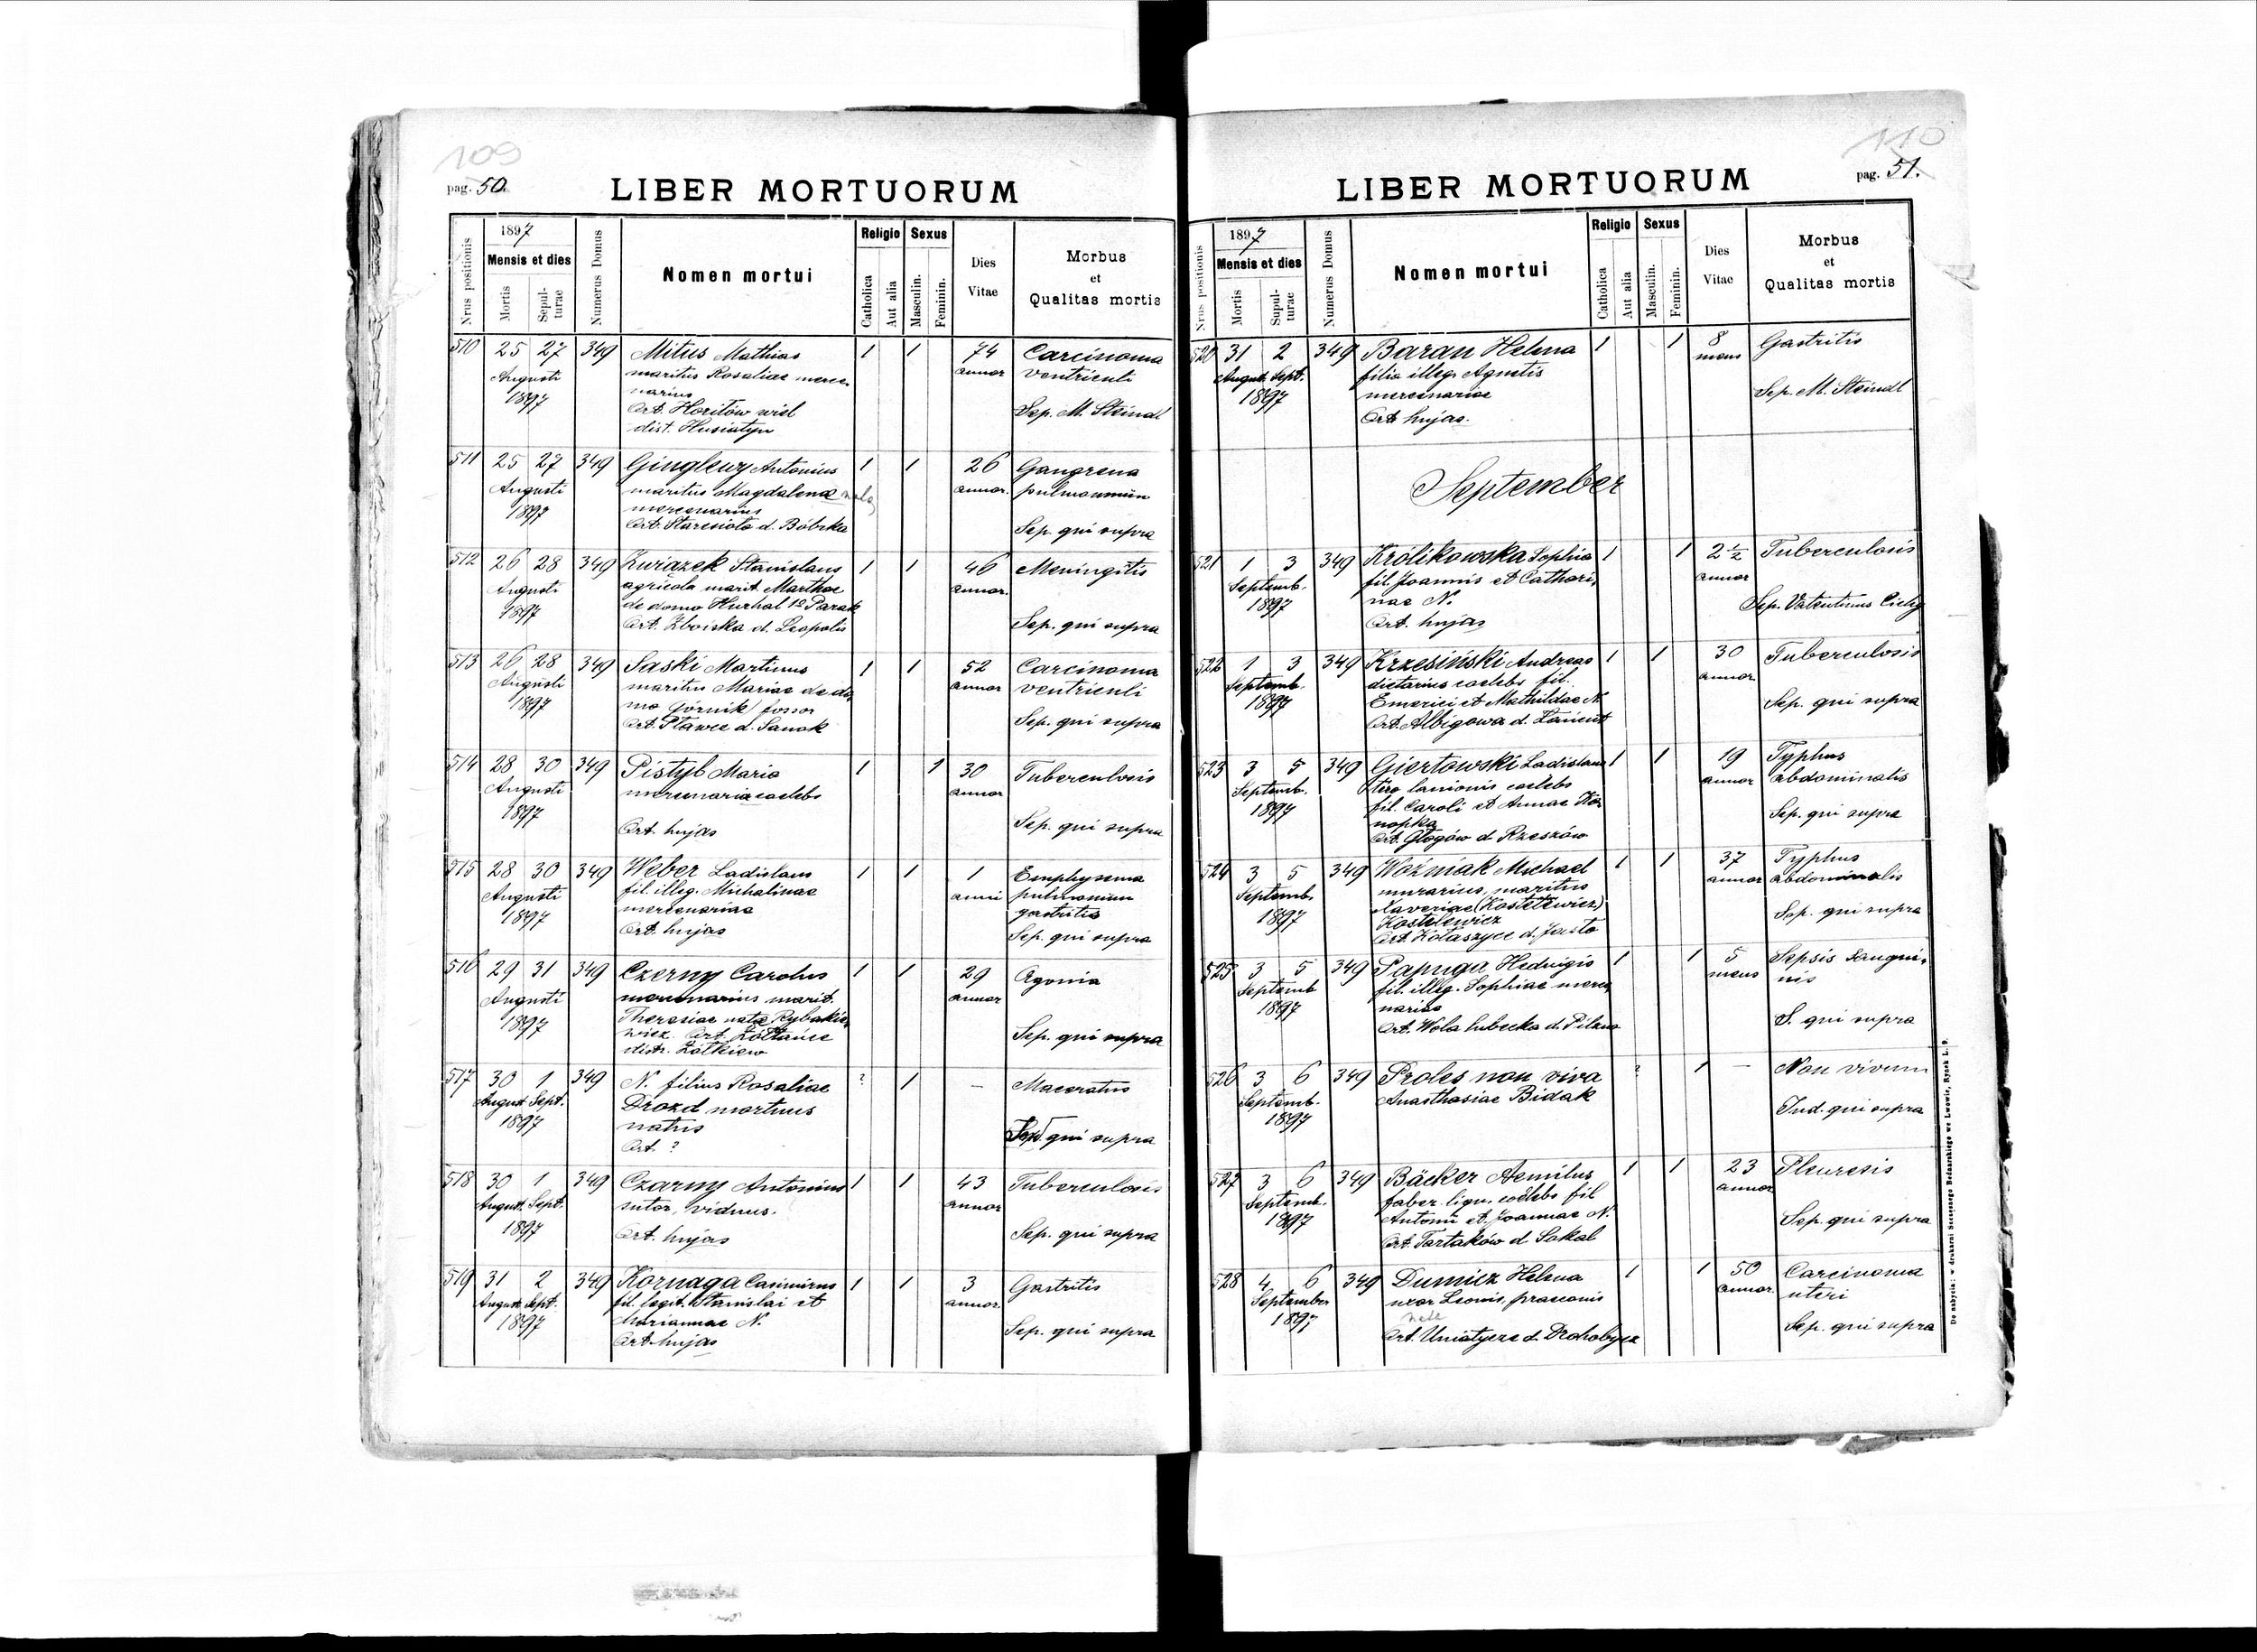 109
pag. 50.
LIBER MORTUORUM
Nrus positionis
1897
Mensis et dies
Mortis
Sepulturae
Numerus Domus
Nomen mortui
Religio
Catholica
Aut alia
Sexus
Masculin.
Feminin.
Dies Vitae
Morbus
et
Qualitas mortis
510 25 27 349 Mitus Mathias 1 1 74 Carcinoma
Augusti maritus Rosaliae merce annor ventriculi
1897 narius
Ort. Horitów wiel Sep. M. Steindl
dist. Husiatyn
511 25 27 349 Antonius 1 1 26 Gangrena
Augusti maritus Magdalena annor. pulmonum
1897 mercenarius
Ort. d. Bóbrka Sep. qui supra
512 26 28 349 Stanislaus 1 1 46 Meningitis
Augusti agricola marit. Marthae annor.
1897 de domo
Ort. Zboiska d. Leopolis Sep. qui supra
513 26 28 349 Saski Martinus 1 1 52 Carcinoma
Augusti maritus Mariae de do, annor ventriculi
1897 mo Górnik fossor
Ort. d. Sanok Sep. qui supra
514 28 30 349 Pistyb Maria 1 1 30 Tuberculosis
Augusti mercenaria caelebs annor
1897
Ort. hujas Sep. qui supra
515 28 30 349 Weber Ladislaus 1 1 1 Emphysema
Augusti fil. illeg. Michalinae anni pulmonum
1897 mercenariae gastritis
Ort. hujas Sep. qui supra
516 29 31 349 Czerny Carolus 1 1 29 Agonia
Augusti mercenarius marit. annor
1897 Theresiae nata Rybakie,
wicz. Ort. Żółtańce Sep. qui supra
distr. Żółkiew
517 30 1 349 N. filius Rosaliae ? 1 — Maceratus
August. Sept. Drozd mortuus
1897 natus qui supra
Ort. ?
518 30 1 349 Czarny Antonius 1 1 43 Tuberculosis
August. Sept. sutor, viduus. annor
1897 Ort. hujas Sep. qui supra
519 31 2 349 Kornaga Casimirus 1 1 3 Gastritis
August. Sept. fil. legit. Stanislai et annor.
1897 Mariannae N.
Ort. hujas Sep. qui supra
110
pag. 51.
LIBER MORTUORUM
Nrus positionis
1897
Mensis et dies
Mortis
Sepulturae
Numerus Domus
Nomen mortui
Religio
Catholica
Aut alia
Sexus
Masculin.
Feminin.
Dies Vitae
Morbus
et
Qualitas mortis
520 31 2 349 Baran Helena 1 1 8 Gastritis
August. Sept. filia illeg. Agnetis mens
1897 mercenariae Sep. M. Steindl
Ort. hujas.
September
521 1 3 349 Królikowska Sophia 1 1 2 1/2 Tuberculosis
Septemb. fil. Joannis et Cathari, annor
1897 nae N. Sep. Valentinus Cichy
Ort. hujas
522 1 3 349 Krzesiński Andreas 1 1 30 Tuberculosis
Septemb. dietarius caelebs fil. annor
1897 Emerici et Mathildae N. Sep. qui supra
Ort. Albigowa d. Łańcut
523 3 5 349 Giertowski Ladislaus 1 1 19 Typhus
Septemb. tiro lanionis caelebs annor abdominalis
1897 fil. Caroli et Annae Ko,
nopka Sep. qui supra
Ort. Głogów d. Rzeszów
524 3 5 349 Woźniak Michael 1 1 37 Typhus
Septemb. murarius, maritus annor abdominalis
1897 Xaveriae (Kostetewicz)
Kostelewicz Sep. qui supra
Ort. Kołaszyce d. Jasło
525 3 5 349 Papuga Hedvigis 1 1 5 Sepsis sangui,
Septemb fil. illeg. Sophiae merce, mens nis
1897 nariae
Ort. Wola lubecka d. Pilzno S. qui supra
526 3 6 349 Proles non viva ? 1 — Non vivum
Septemb. Anasthasiae Bidak
1897 Ind. qui supra
527 3 6 349 Bäcker Aemilus 1 1 23 Pleuresis
Septemb. faber lign. caelebs fil annor
1897 Antonii et Joannae N. Sep. qui supra
Ort. Tartaków d. Sokal
528 4 6 349 Dumicz Helena 1 1 50 Carcinoma
September uxor Leonis, praeconis annor. uteri
1897 nata
Ort. Uniatycze d. Drohobycz Sep. qui supra
De nabycia: w drukarni Szczęsnego Bednarskiego we Lwowie, Rynek L. 9.